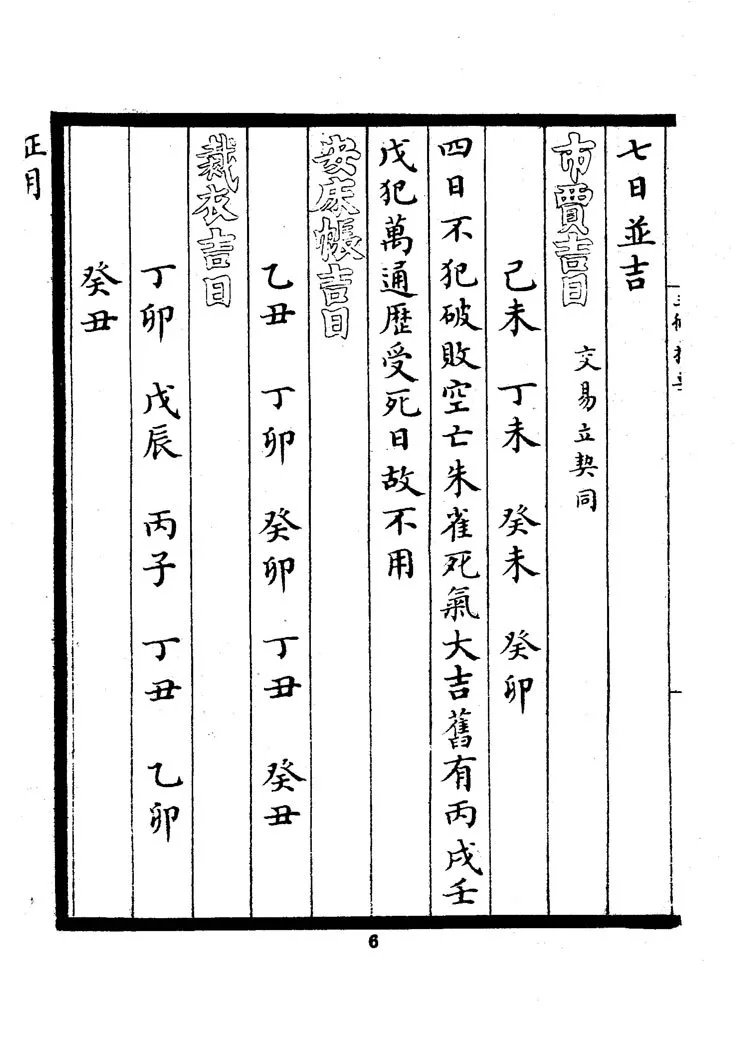 七日並吉
市賈吉日 交易立契同
己未 丁未 癸未 癸卯
四日不犯破敗空亡朱雀死氣大吉舊有丙戌壬
戌犯萬通歴受死日故不用
安床帳吉日
乙丑 丁卯 癸卯 丁丑 癸丑
裁衣吉日
丁卯 戊辰 丙子 丁丑 乙卯
癸丑
正月
6